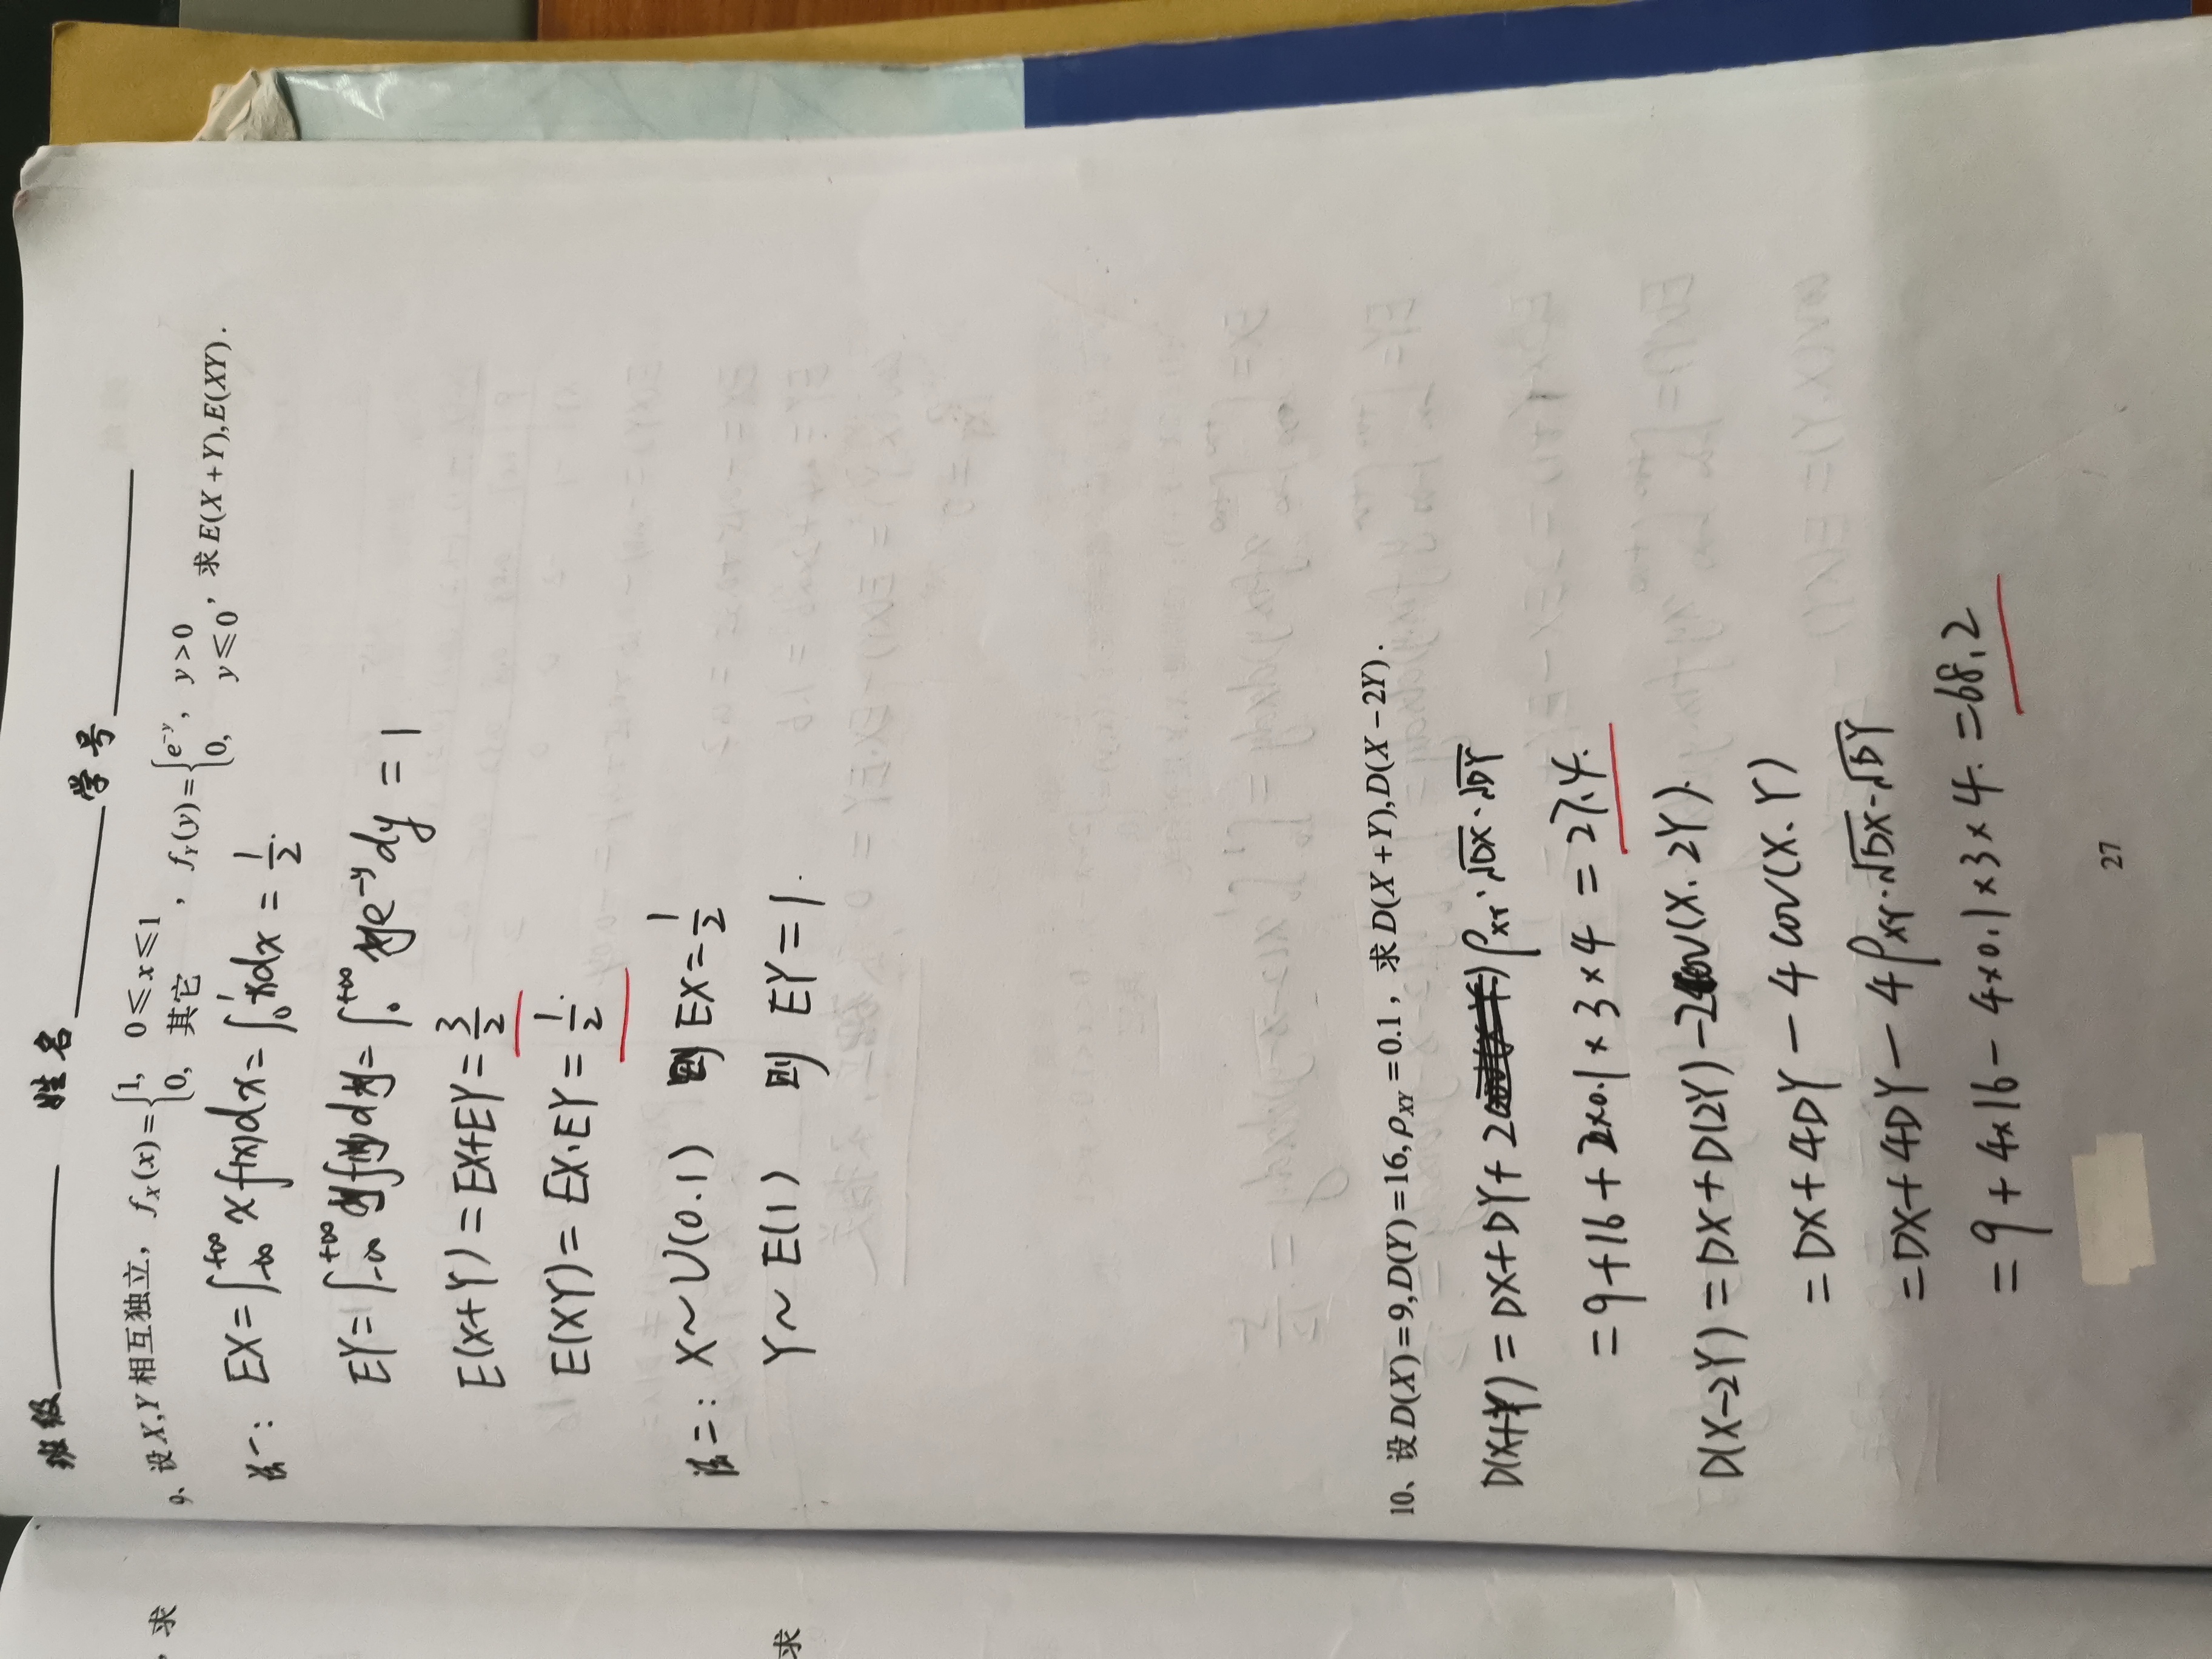 班级 姓名 学号
9、设X,Y相互独立, f_X(x)={1, 0≤x≤1
0, 其它 , f_Y(y)={e^{-y}, y>0
0, y≤0 , 求E(X+Y),E(XY).
法一: EX=∫_{-∞}^{+∞} x f(x)dx=∫_0^1 xdx=1/2.
EY=∫_{-∞}^{+∞} yf(y)dy=∫_0^{+∞} ye^{-y}dy=1
E(X+Y)=EX+EY=3/2
E(XY)=EX·EY=1/2.
法二: X~U(0.1) 则 EX=1/2
Y~E(1) 则 EY=1.
10、设D(X)=9,D(Y)=16,ρ_{XY}=0.1, 求D(X+Y),D(X-2Y).
D(X+Y)=DX+DY+2ρ_{XY}·√DX·√DY
=9+16+2×0.1×3×4=27.4.
D(X-2Y)=DX+D(2Y)-2cov(X.2Y).
=DX+4DY-4cov(X.Y)
=DX+4DY-4ρ_{XY}·√DX·√DY
=9+4×16-4×0.1×3×4.=68.2
27
, 求
求